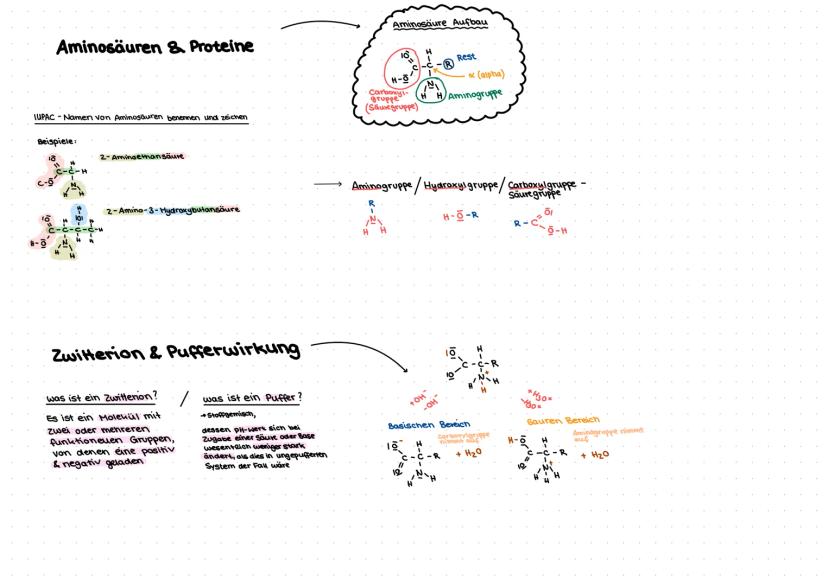 Aminosäuren & Proteine
Aminosäure Aufbau
Rest
α (alpha)
Carboxyl-
gruppe
(Säuregruppe)
Aminogruppe
IUPAC - Namen von Aminosäuren benennen und zeichen
Beispiele:
2-Aminoethansäure
2-Amino-3-Hydroxybutansäure
→ Aminogruppe / Hydroxylgruppe / Carboxylgruppe -
Säuregruppe
R
H-O-R
R-C
O-H
Zwitterion & Pufferwirkung
was ist ein Zwitterion? / was ist ein Puffer?
Es ist ein Molekül mit
zwei oder mehreren
funktionellen Gruppen,
von denen eine positiv
& negativ geladen
→ Stoffgemisch,
dessen pH-Wert sich bei
Zugabe einer Säure oder Base
wesentlich weniger stark
ändert, als dies in ungepufferten
System der Fall wäre
+OH⁻
-OH⁻
Basischen Bereich
Carboxylgruppe
nimmt auf
+ H₂O
Sauren Bereich
Aminogruppe nimmt
auf
+ H₂O